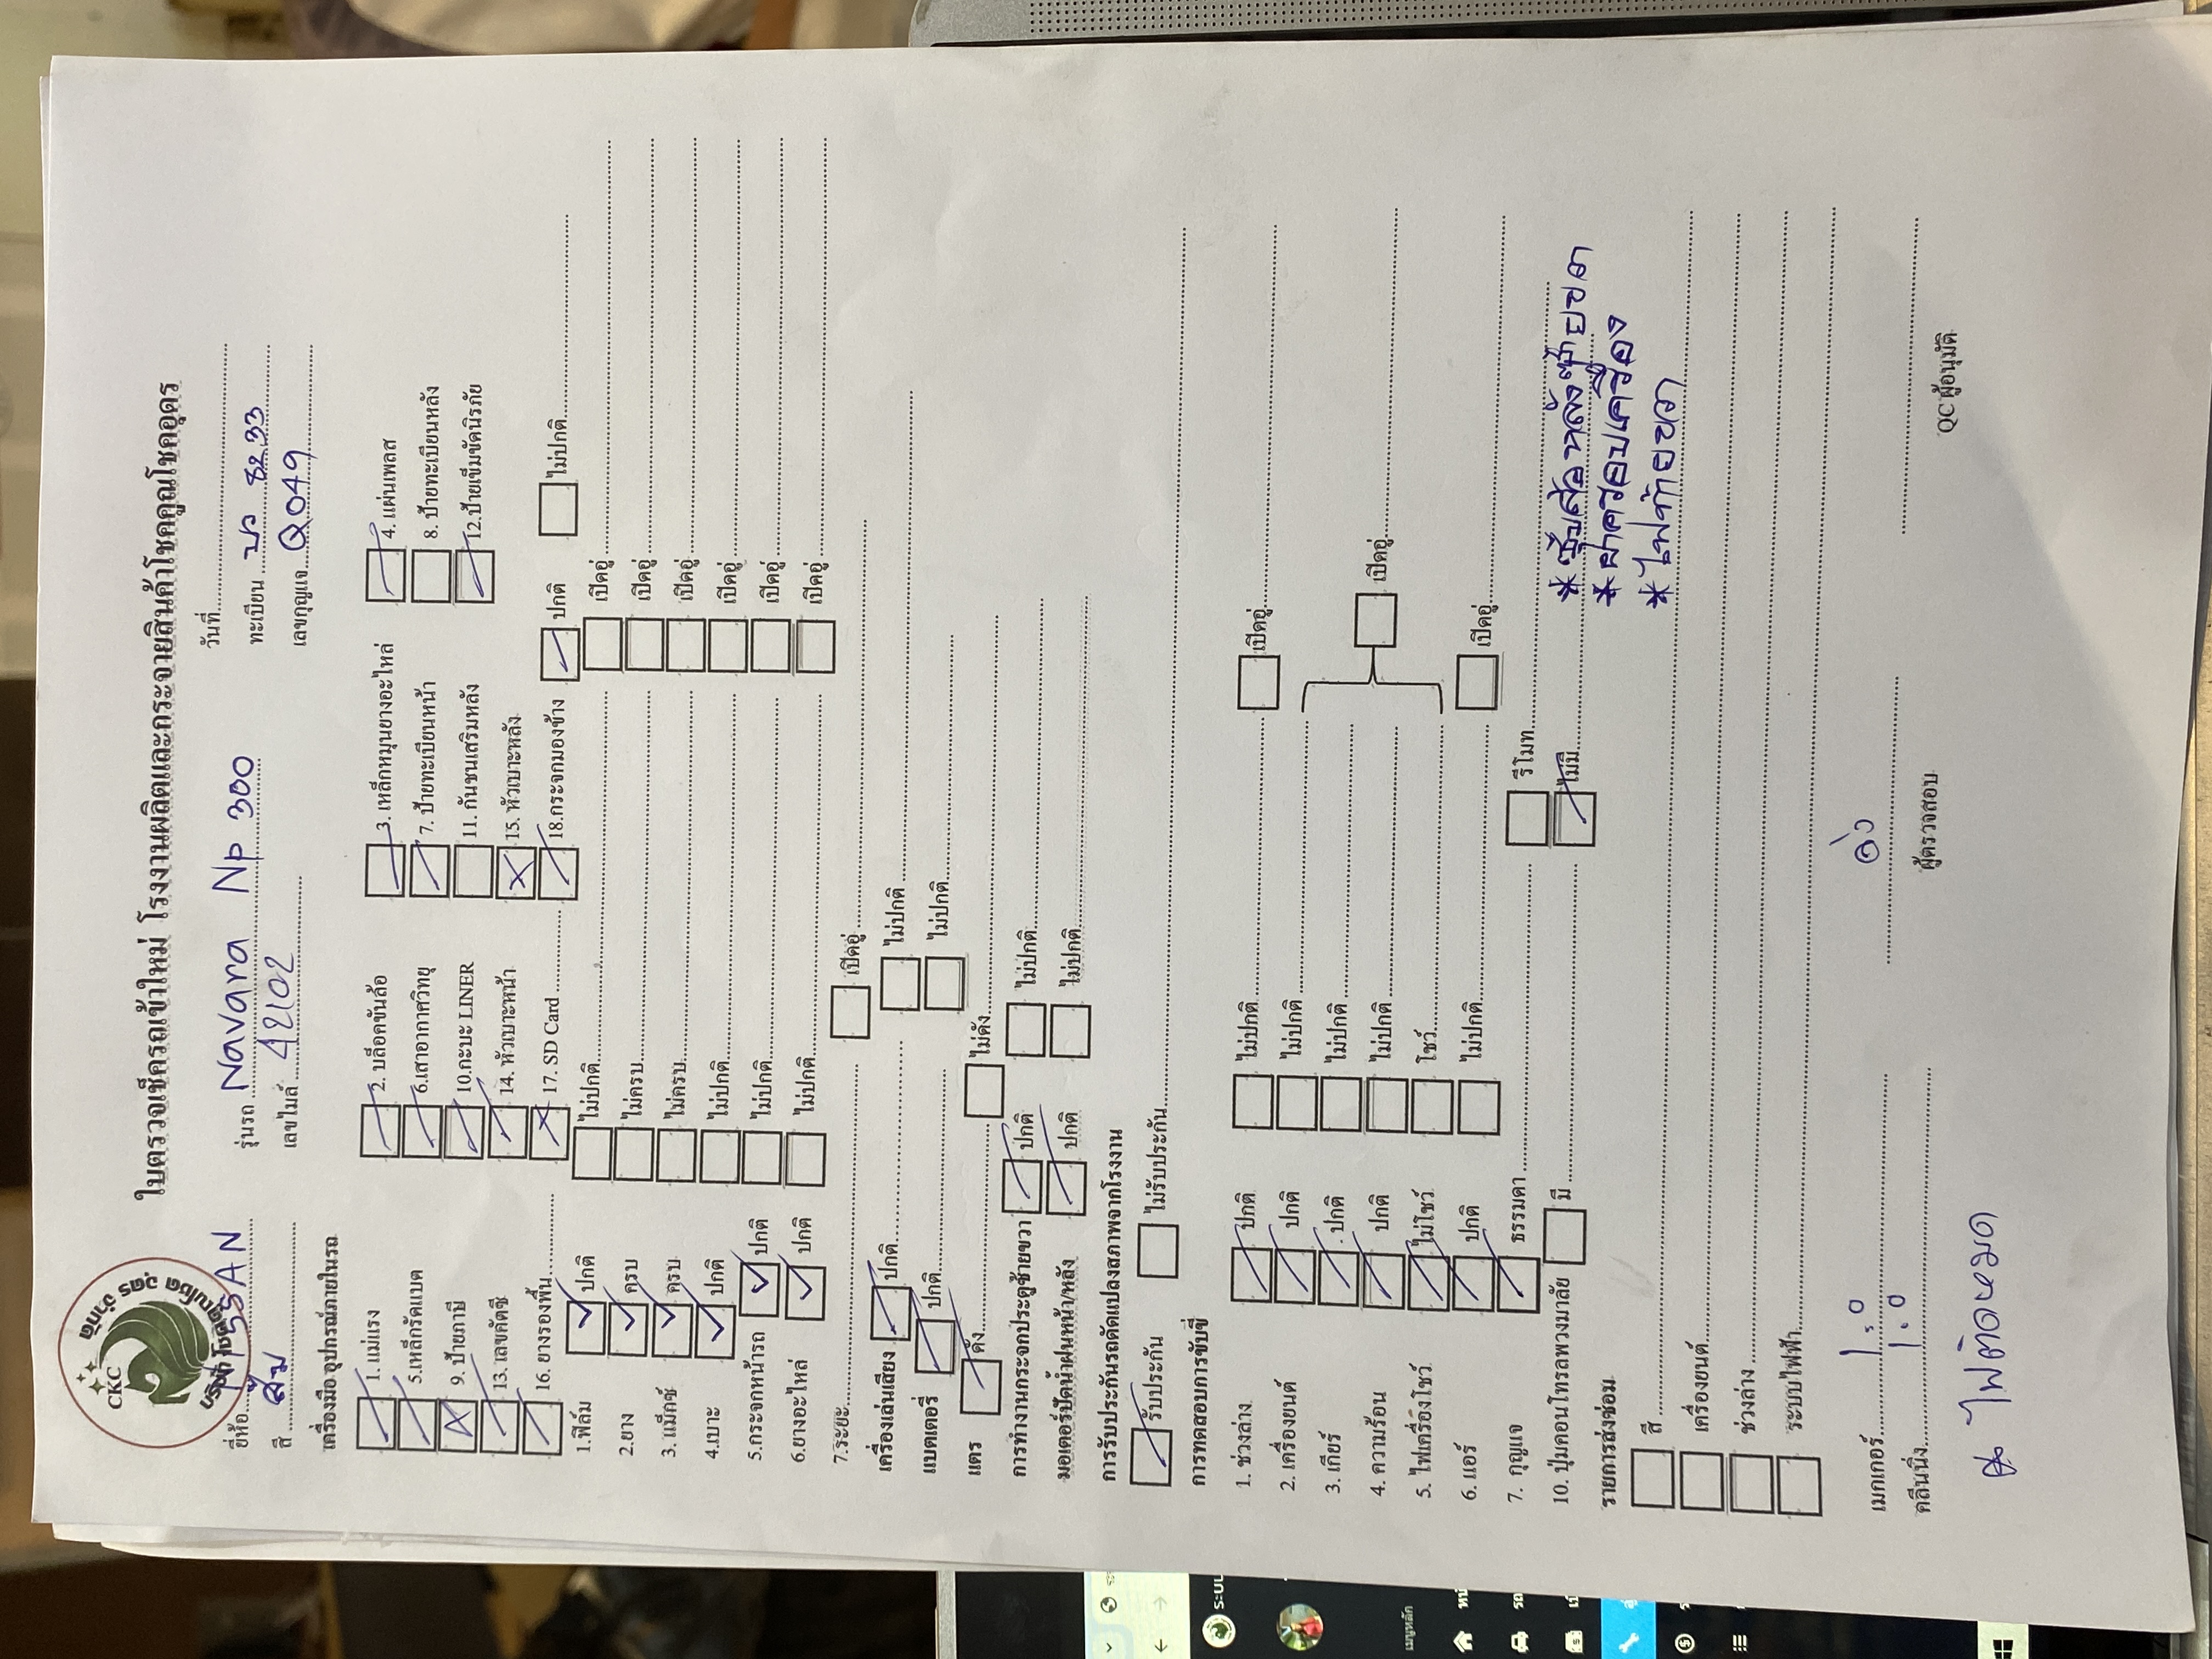 ใบตรวจเช็ครถเข้าใหม่ โรงงานผลิตและกระจายสินค้าโชคคูณโชคอุดร
CKC
วันที่
ยี่ห้อ NISSAN รุ่นรถ Navara Np 300 ทะเบียน 8233
สี ส้ม เลขไมล์ 42102 เลขกุญแจ Q049
เครื่องมือ อุปกรณ์ภายในรถ
1. แม่แรง 2. บล็อคขันล้อ 3. เหล็กหมุนยางอะไหล่ 4. แผ่นเพลส
5.เหล็กรัดแบต 6.เสาอากาศวิทยุ 7. ป้ายทะเบียนหน้า 8. ป้ายทะเบียนหลัง
9. ป้ายภาษี 10.กะบะ LINER 11. กันชนเสริมหลัง 12.ป้ายเข็มขัดนิรภัย
13. เลขคัตซี 14. หัวเบาะหน้า 15. หัวเบาะหลัง
16. ยางรองพื้น 17. SD Card 18.กระจกมองข้าง ปกติ ไม่ปกติ
1.ฟิล์ม ปกติ ไม่ปกติ เปิดอู่
2.ยาง ครบ ไม่ครบ เปิดอู่
3. แม็กซ์ ครบ ไม่ครบ เปิดอู่
4.เบาะ ปกติ ไม่ปกติ เปิดอู่
5.กระจกหน้ารถ ปกติ ไม่ปกติ เปิดอู่
6.ยางอะไหล่ ปกติ ไม่ปกติ เปิดอู่
7.ระยะ เปิดอู่
เครื่องเล่นเสียง ปกติ ไม่ปกติ
แบตเตอรี่ ปกติ ไม่ปกติ
แตร ดัง ไม่ดัง
การทำงานกระจกประตูซ้ายขวา ปกติ ไม่ปกติ
มอเตอร์ปัดน้ำฝนหน้า/หลัง ปกติ ไม่ปกติ
การรับประกันรถดัดแปลงสภาพจากโรงงาน
รับประกัน ไม่รับประกัน
การทดสอบการขับขี่
1. ช่วงล่าง ปกติ ไม่ปกติ เปิดอู่
2. เครื่องยนต์ ปกติ ไม่ปกติ
3. เกียร์ ปกติ ไม่ปกติ เปิดอู่
4. ความร้อน ปกติ ไม่ปกติ
5. ไฟเครื่องโชว์ ไม่โชว์ โชว์
6. แอร์ ปกติ ไม่ปกติ เปิดอู่
7. กุญแจ ธรรมดา รีโมท
10. ปุ่มคอนโทรลพวงมาลัย มี ไม่มี
*ซุ้มล้อหลังซ้ายขวา
รายการส่งซ่อม *ฝาครอบเครื่อง
สี *ไฟท้ายขวา
เครื่องยนต์
ช่วงล่าง
ระบบไฟฟ้า
เมกเกอร์ 1.0
คลีนนิ่ง 1.0
ผู้ตรวจสอบ QC ผู้อนุมัติ
* ไฟตัดหมอก